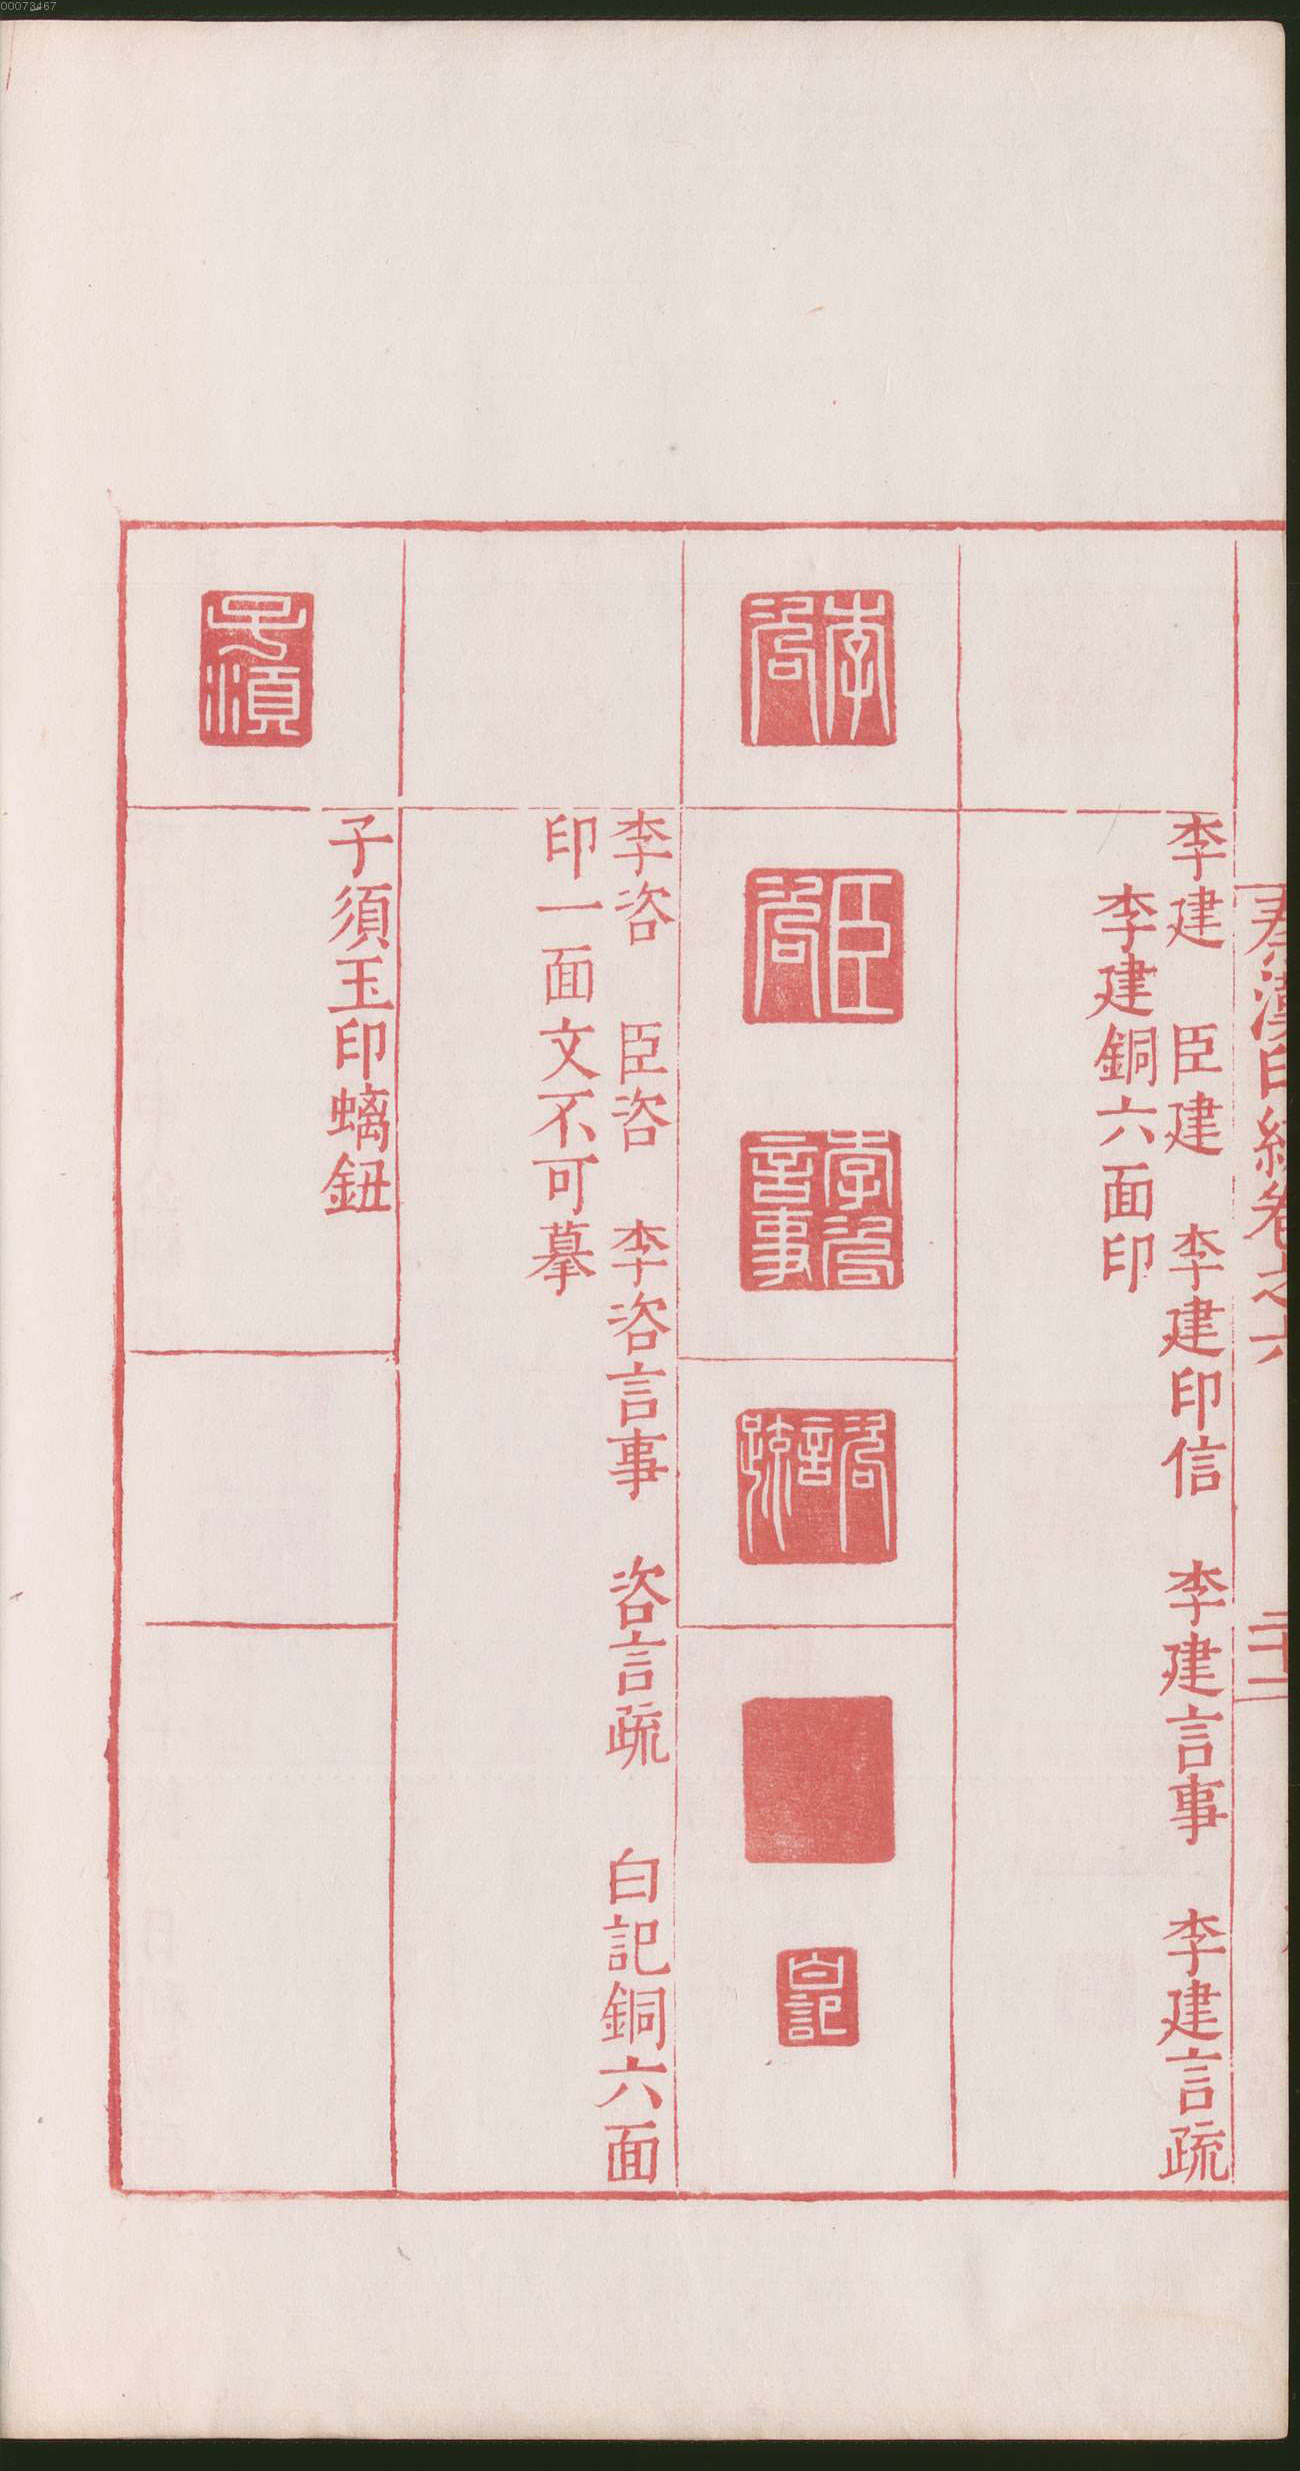 秦漢印統卷之六
二十二
李建　臣建　李建印信　李建言事　李建言疏
李建銅六面印
李咨
臣咨
李咨言事
咨言疏
白記
李咨　臣咨　李咨言事　咨言疏　白記銅六面
印一面文不可摹
子須
子須玉印螭鈕
00073467